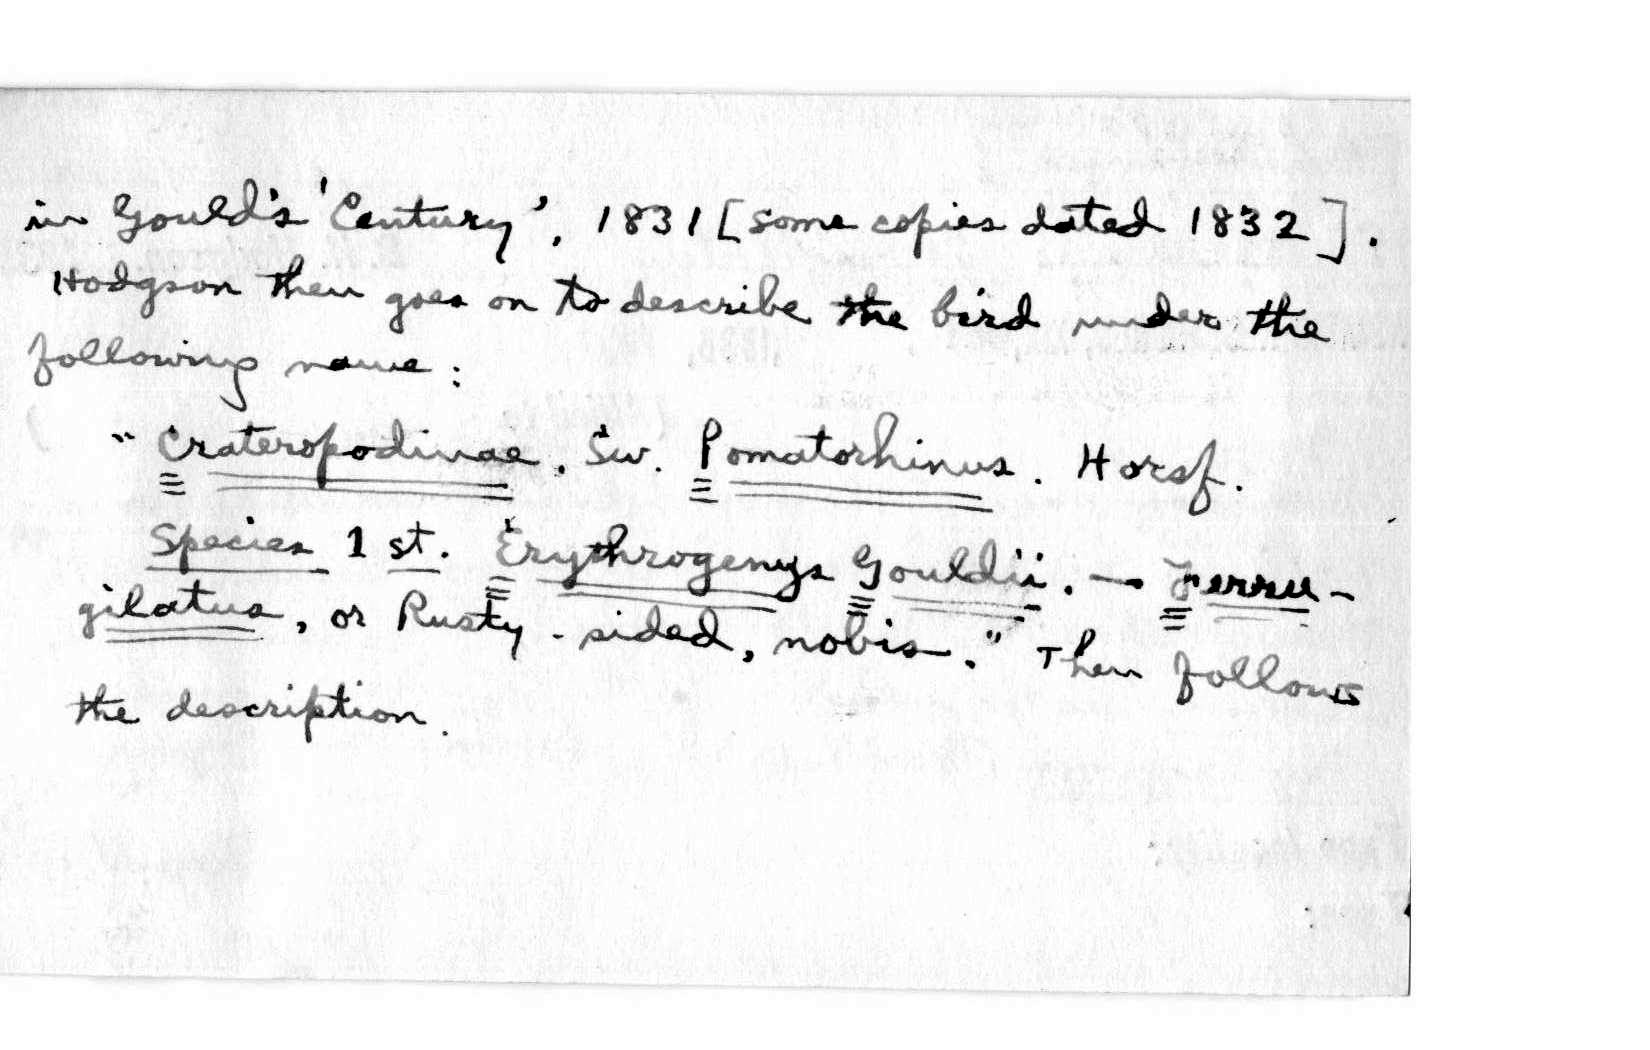 in Gould's 'Century', 1831 [some copies dated 1832].
Hodgson then goes on to describe the bird under the
following name:
"Crateropodinae. Sw. Pomatorhinus. Horsf.
Species 1 st. Erythrogenys Gouldii. — Ferru-
gilatus, or Rusty-sided, nobis." Then follows
the description.